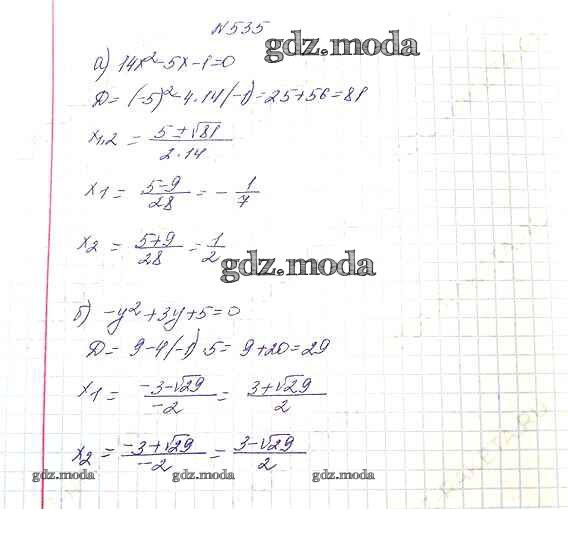 №535
gdz.moda
а) 14x²-5x-1=0
D=(-5)²-4·14(-1)=25+56=81
x1,2 = (5±√81)/(2·14)
x1 = (5-9)/28 = -1/7
x2 = (5+9)/28 = 1/2
gdz.moda
б) -y²+3y+5=0
D= 9-4(-1)·5= 9+20=29
x1 = (-3-√29)/(-2) = (3+√29)/2
x2 = (-3+√29)/(-2) = (3-√29)/2
gdz.moda gdz.moda gdz.moda